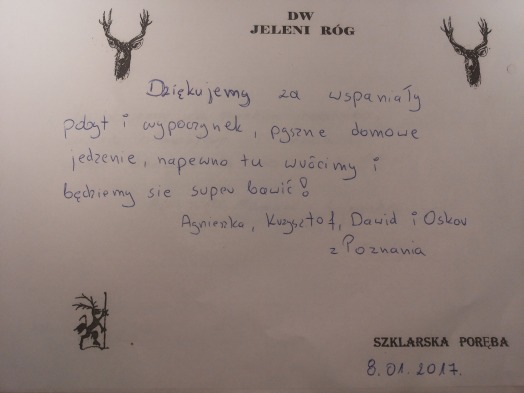 DW
JELENI RÓG
Dziękujemy za wspaniały
pobyt i wypoczynek, pyszne domowe
jedzenie, napewno tu wrócimy i
będziemy sie super bawić!
Agnieszka, Krzysztof, Dawid i Oskar
z Poznania
SZKLARSKA PORĘBA
8.01.2017.